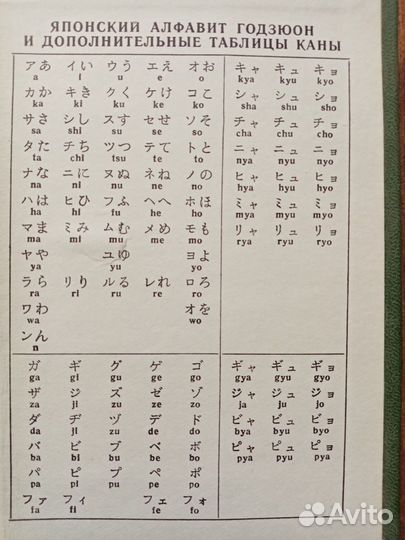 ЯПОНСКИЙ АЛФАВИТ ГОДЗЮОН
И ДОПОЛНИТЕЛЬНЫЕ ТАБЛИЦЫ КАНЫ
アあ イい ウう エえ オお
a i u e o
カか キき クく ケけ コこ
ka ki ku ke ko
サさ シし スす セせ ソそ
sa shi su se so
タた チち ツつ テて トと
ta chi tsu te to
ナな ニに ヌぬ ネね ノの
na ni nu ne no
ハは ヒひ フふ ヘへ ホほ
ha hi fu he ho
マま ミみ ムむ メめ モも
ma mi mu me mo
ヤや ユゆ ヨよ
ya yu yo
ラら リり ルる レれ ロろ
ra ri ru re ro
ワわ オを
wa wo
ンん
n
キャ キュ キョ
kya kyu kyo
シャ シュ ショ
sha shu sho
チャ チュ チョ
cha chu cho
ニャ ニュ ニョ
nya nyu nyo
ヒャ ヒュ ヒョ
hya hyu hyo
ミャ ミュ ミョ
mya myu myo
リャ リュ リョ
rya ryu ryo
ガ ギ グ ゲ ゴ
ga gi gu ge go
ザ ジ ズ ゼ ゾ
za ji zu ze zo
ダ ヂ ヅ デ ド
da ji zu de do
バ ビ ブ ベ ボ
ba bi bu be bo
パ ピ プ ペ ポ
pa pi pu pe po
ファ フィ フェ フォ
fa fi fe fo
ギャ ギュ ギョ
gya gyu gyo
ジャ ジュ ジョ
ja ju jo
ビャ ビュ ビョ
bya byu byo
ピャ ピュ ピョ
pya pyu pyo
Avito